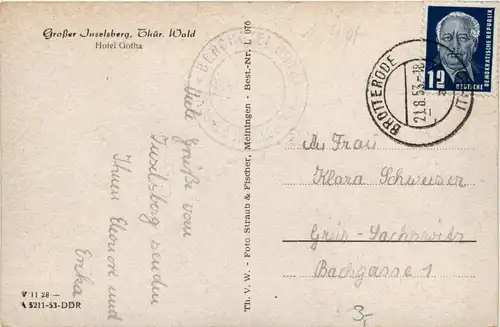 Großer Inselsberg, Thür. Wald
Hotel Gotha
Viele Grüße vom
Inselsberg senden
Ihnen Eleonore und
Erika
V 11 28 —
A 5211-53-DDR
Th. V. W. - Foto Straub & Fischer, Meiningen - Best.-Nr. L 076
BERGHOTEL
12
DEUTSCHE
DEMOKRATISCHE REPUBLIK
BROTTERODE
21.8.53.-18
An Frau
Klara
Greiz-
Bachgasse 1
3,-